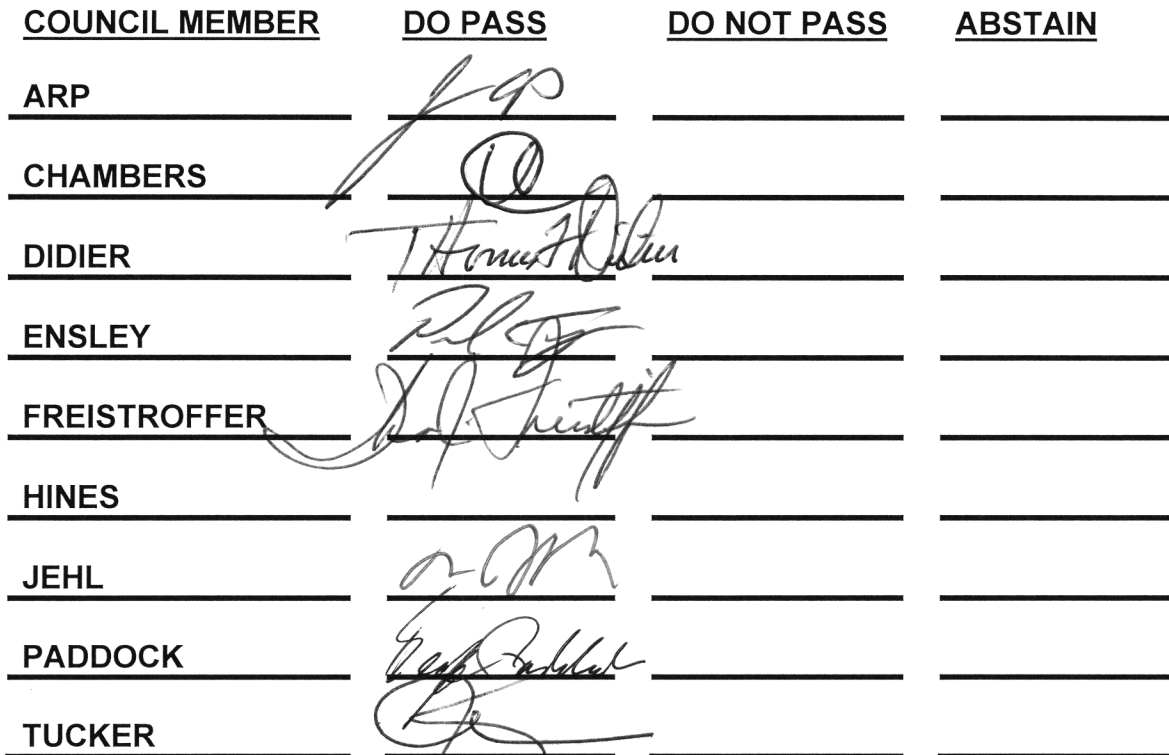 COUNCIL MEMBER DO PASS DO NOT PASS ABSTAIN
ARP
CHAMBERS
DIDIER Thomas F Didier
ENSLEY
FREISTROFFER
HINES
JEHL
PADDOCK Paddock
TUCKER